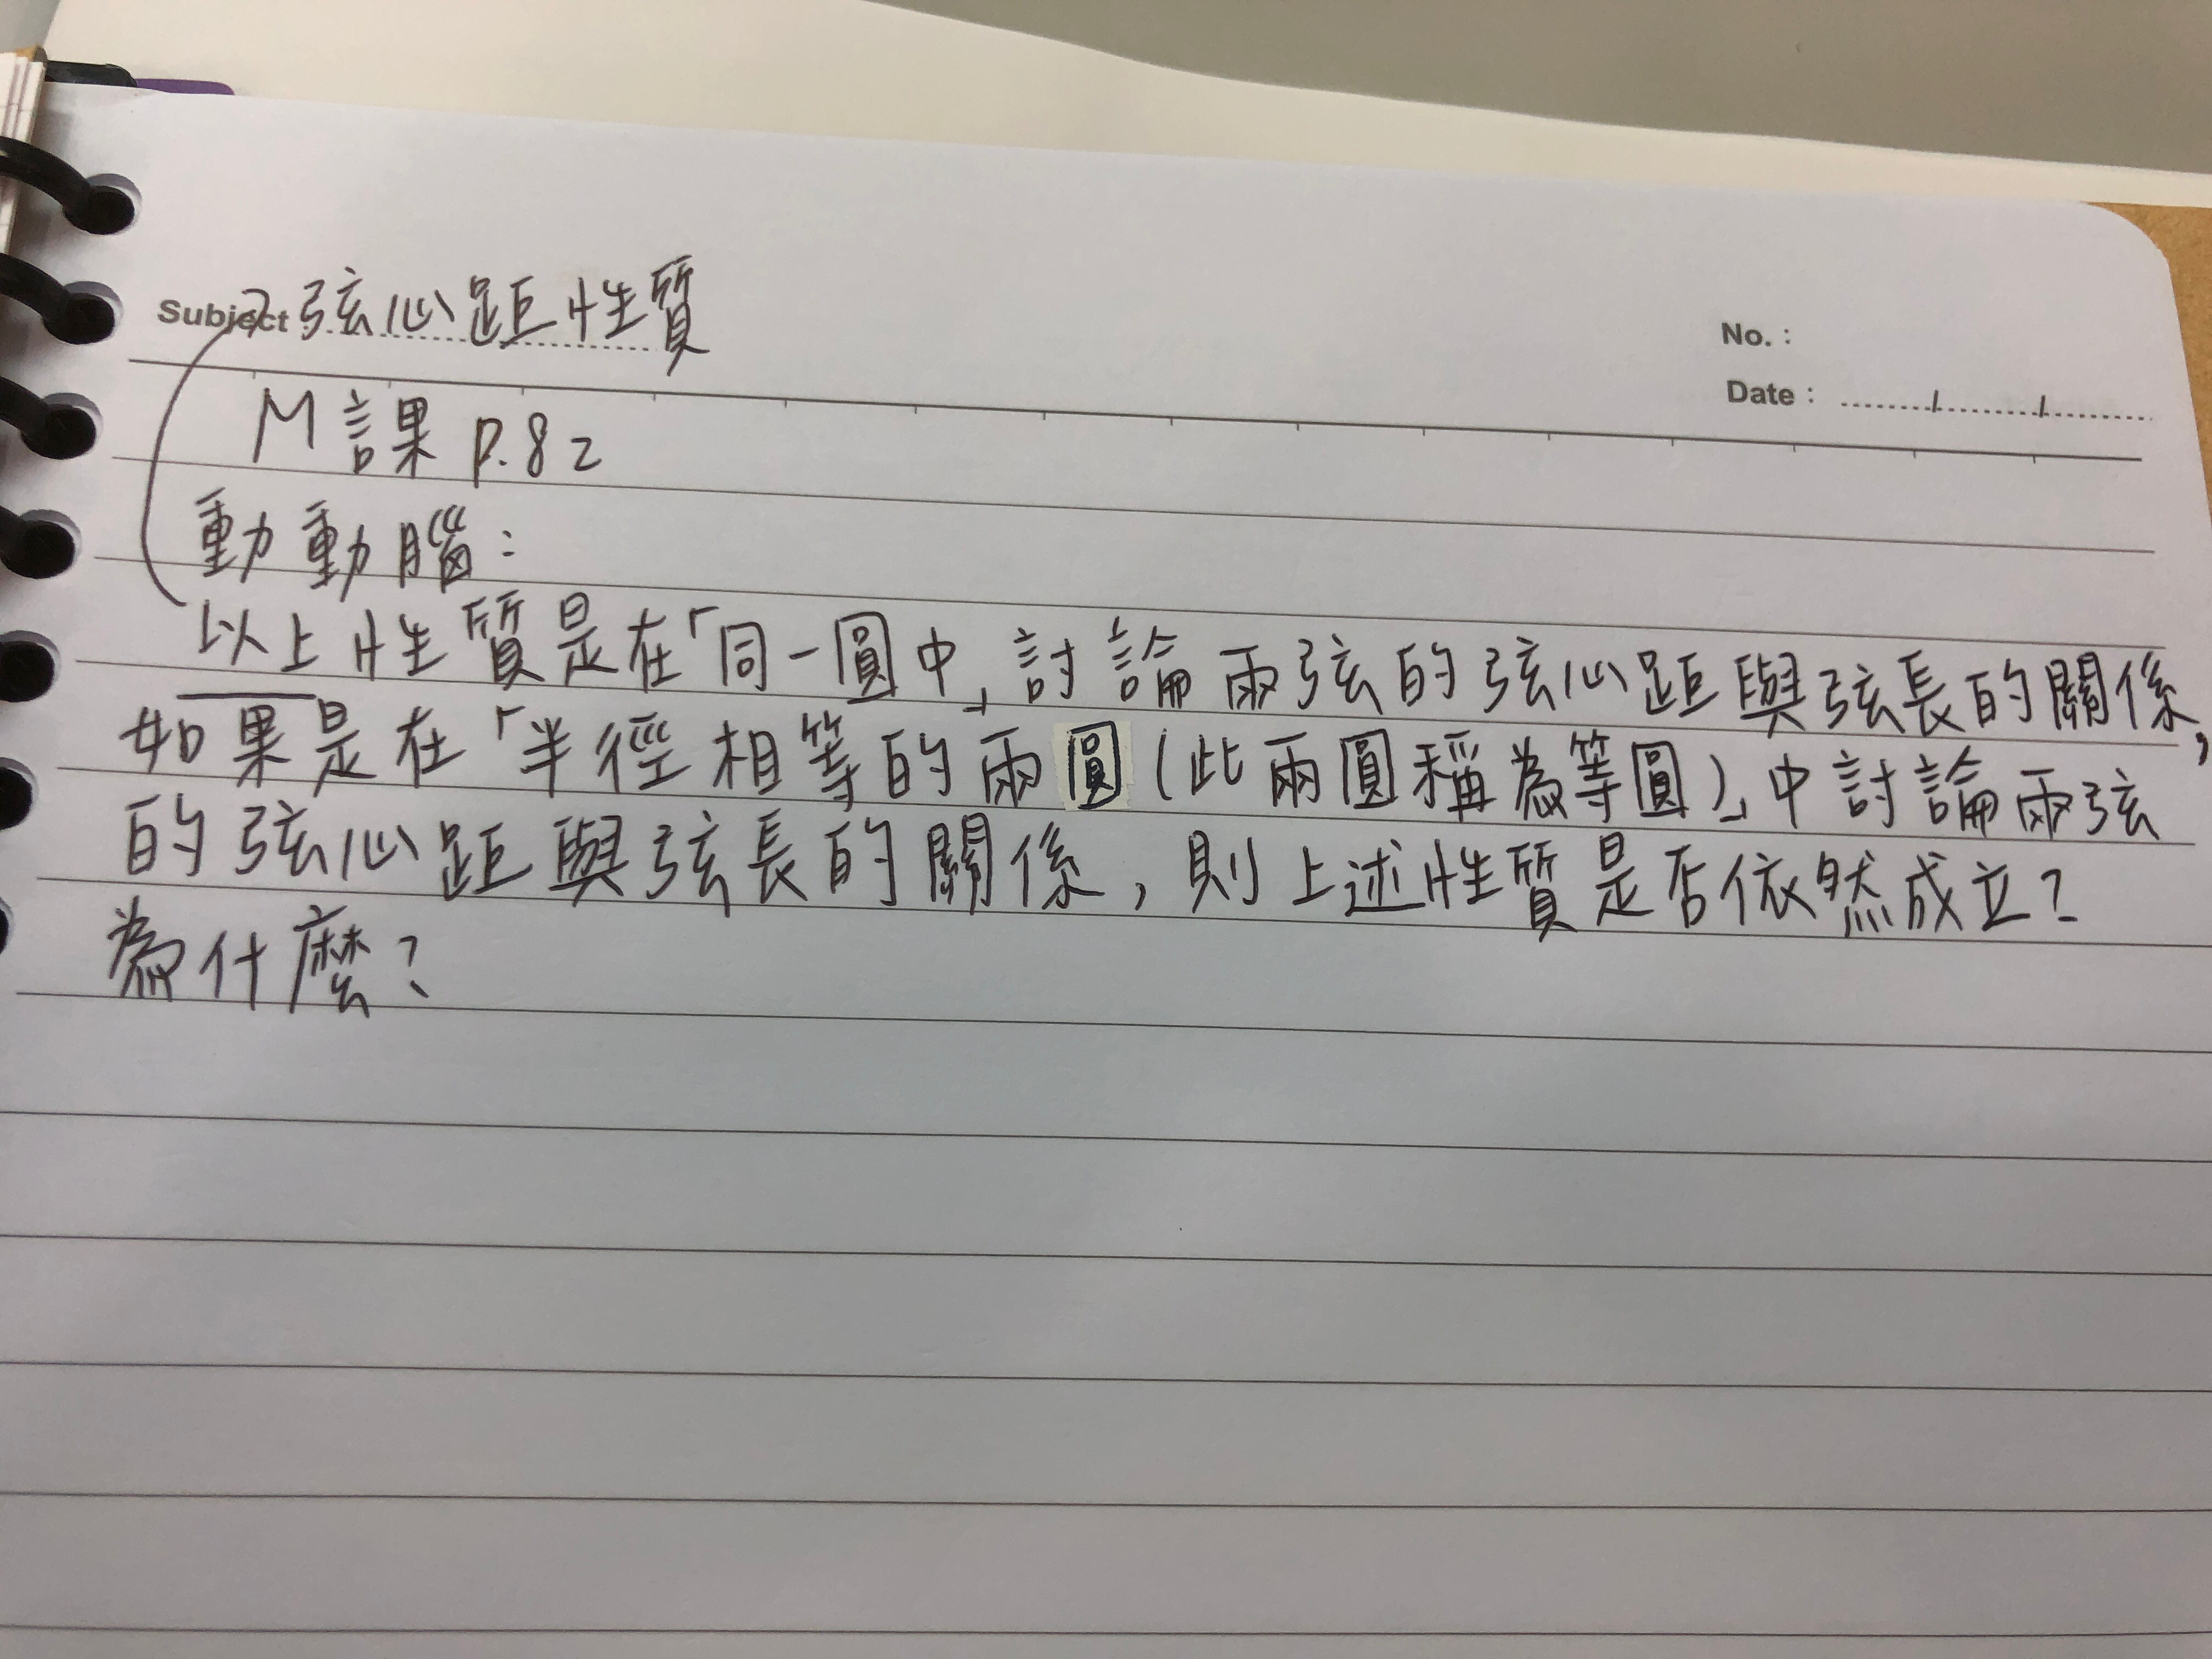 Subject 弦心距性質
No.：
Date： / /
M課 p.82
動動腦：
以上性質是在「同一圓中」討論兩弦的弦心距與弦長的關係，
如果是在「半徑相等的兩圓(此兩圓稱為等圓)」中討論兩弦
的弦心距與弦長的關係，則上述性質是否依然成立？
為什麼？